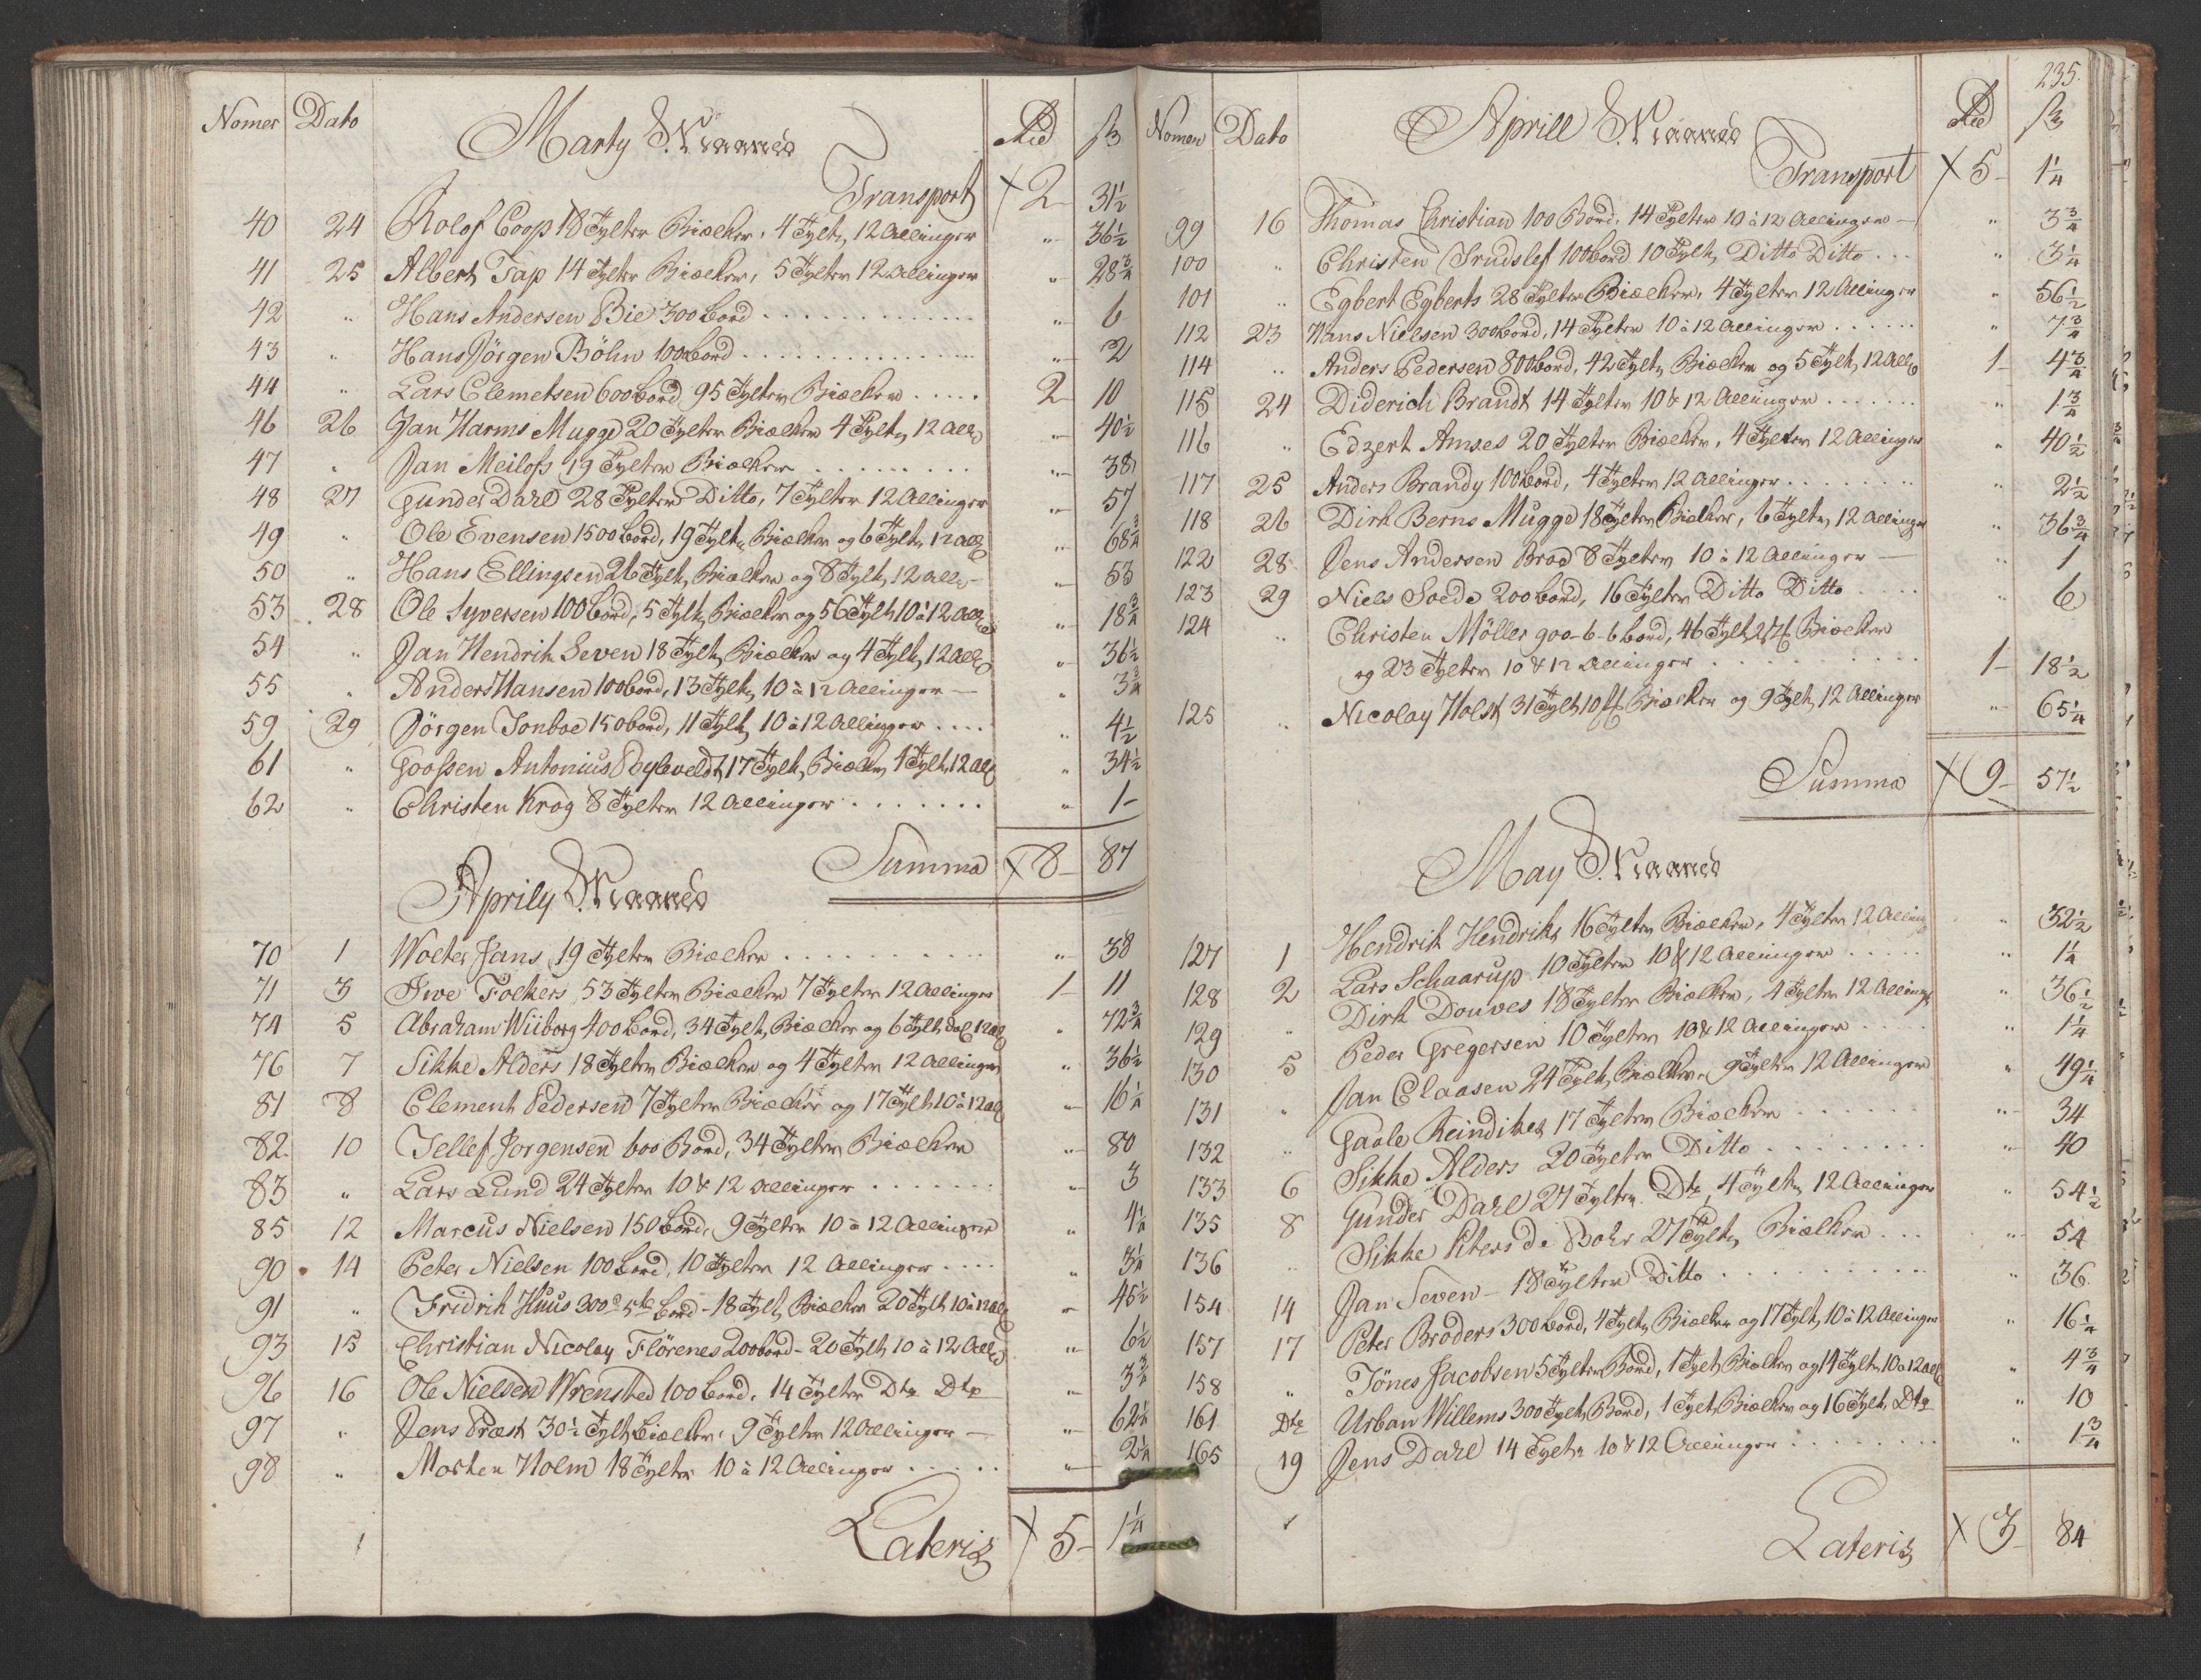 Nomer Dato Marty Maaned Rd ß
Transport 2 31 1/2
40 24 Rolof Coop 18 Tylter Biælker, 4 Tylt, 12 Allinger " 36 1/2
41 25 Albert Tap 14 Tylter Biælker, 5 Tylter 12 Allinger " 28 3/4
42 " Hans Andersen Bie 300 bord " 6
43 " Hans Jörgen Böhn 100 bord " 2
44 " Lars Clemetsen 600 bord 95 Tylter Biælker 2 10
46 26 Jan Harms Mugge 20 Tylter Biælker 4 Tylt, 12 All " 40 1/2
47 " Jan Meilofs 19 Tylter Biælker " 38
48 27 Gunder Dahl 28 Tylter Ditto, 7 Tylter 12 Allinger " 57
49 " Ole Evensen 1500 bord, 19 Tylt, Biælker og 6 Tylt, 12 all " 68 3/4
50 " Hans Ellingsen 26 Tylt, Biælker og 8 Tylt, 12 all " 53
53 28 Ole Syversen 100 bord, 5 Tylt, Biælker og 56 Tylt 10 à 12 All " 18 3/4
54 " Jan Hendrik Seven 18 Tylt, Biælker og 4 Tylt, 12 All " 36 1/2
55 " Anders Hansen 100 bord, 13 Tylt, 10 à 12 Allinger " 3 3/4
59 29 Jörgen Tonboe 150 bord, 11 Tylt, 10 à 12 Allinger " 4 1/2
61 " Goofsen Antonius Ryleveldt 17 Tylt, Biælk, 4 Tylt, 12 All " 34 1/2
62 " Christen Krog 8 Tylter 12 Allinger " 1
Summa 8 87
Aprily Maaned
70 1 Wolter Jans 19 Tylter Biælker " 38
71 3 Iwe Folkers 53 Tylter Biælker 7 Tylter 12 Allinger 1 11
74 5 Abraham Wiiborg 400 bord, 34 Tylt, Biælker og 6 Tylt, 12 all " 72 3/4
76 7 Sikke Alders 18 Tylter Biælker og 4 Tylter 12 Allinger " 36 1/2
81 8 Clement Pedersen 7 Tylter Biælker og 17 Tylt 10 à 12 all " 16 1/4
82 10 Tellef Jorgensen 600 Bord, 34 Tylter Biælker " 80
83 " Lars Lund 24 Tylter 10 & 12 Allinger " 3
85 12 Marcus Nielsen 150 bord, 9 Tylter 10 à 12 Allinger " 4 1/4
90 14 Peter Nielsen 100 bord, 10 Tylter 12 Allinger " 3 1/4
91 " Fridrik Huus 300 bord - 18 Tylt, Biælker 20 Tylt 10 à 12 all " 45 1/2
93 15 Christian Nicolay Flörenes 200 bord - 20 Tylt, 10 à 12 All " 6 1/2
96 16 Ole Nielsen Wrensted 100 bord, 14 Tylter Dto Dto " 3 3/4
97 " Jens Præst 30 1/2 Tylt biælker, 9 Tylter 12 Allinger " 62 1/4
98 " Morten Holm 18 Tylter 10 à 12 Allinger " 2 1/4
Lateris 5 1 1/4
235.
Nomer Dato Aprill Maaned Rd ß
Transport 5 1 1/4
99 16 Thomas Christian 100 Bord, 14 Tylter 10 à 12 Allinger " 3 3/4
100 " Christen Trudslef 100 bord 10 Tylt, Ditto Ditto " 3 1/4
101 " Egbert Egberts 28 Tylter Biælker, 4 Tylter 12 Allinger " 56 1/2
112 23 Hans Nielsen 300 bord, 14 Tylter 10 à 12 Allinger " 7 3/4
114 " Anders Pedersen 800 bord, 42 Tylt, Biælker og 5 Tylt, 12 All 1 4 3/4
115 24 Diderich Brandt 14 Tylter 10 & 12 Allinger " 1 3/4
116 " Edzert Amses 20 Tylter Biælker, 4 Tylter 12 Allinger " 40 1/2
117 25 Anders Brandy 100 bord, 4 Tylter 12 Allinger " 2 1/2
118 26 Dirk Berns Mugge 18 Tylter Biælker, 6 Tylt, 12 Allinger " 36 3/4
122 28 Jens Andersen Brod 8 Tylter 10 à 12 Allinger " 1
123 29 Niels Soede 200 bord, 16 Tylter Ditto Ditto " 6
124 " Christen Möller 900 - 6 - 6 bord, 46 Tylt 2 Biælker
og 23 Tylter 10 & 12 Allinger 1 18 1/2
125 " Nicolay Holst 31 Tylt 10 Biælker og 9 Tylt, 12 Allinger " 65 1/4
Summa 9 57 1/2
May Maaned
127 1 Hendrik Hendriks 16 Tylter Biælker, 4 Tylter 12 Alling " 32 1/2
128 2 Lars Schaarup 10 Tylter 10 & 12 Allinger " 1 1/4
129 " Dirk Douwes 18 Tylter Biælker, 4 Tylter 12 Allinger " 36 1/2
130 5 Peder Gregersen 10 Tylter 10 & 12 Allinger " 1 1/4
131 " Jan Claasen 24 Tylt, Biælker, 9 Tylter 12 Allinger " 49 1/4
132 " Gaale Reindikes 17 Tylter Biælker " 34
133 6 Sikke Alders 20 Tylter Ditto " 40
135 8 Gunder Dahl 27 Tylter Dto, 4 Tylt, 12 Allinger " 54 1/2
136 " Sikke Piters de Boer 27 Tylt, Biælker " 54
154 14 Jan Seven - 18 Tylter Ditto " 36
157 17 Peter Broders 300 bord, 4 Tylt, Biælker og 17 Tylt, 10 à 12 Allinger " 16 1/4
158 " Jönes Jacobsen 5 Tylter Bord, 1 Tylt Biælker og 14 Tylt, 10 à 12 all " 4 3/4
161 Dto Urban Willems 300 Tylt, Bord, 1 Tylt, Biælker og 16 Tylt, Dto " 10
165 19 Jens Dahl 14 Tylt, 10 & 12 Allinger " 1 3/4
Lateris 3 84